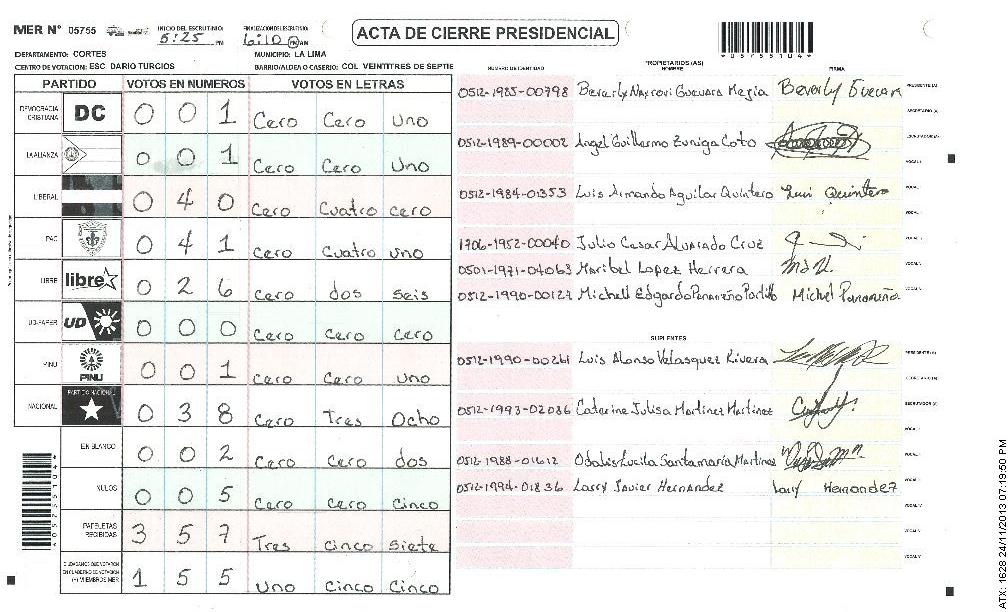 MER Nº 05755 INICIO DEL ESCRUTINIO: 5:25 PM FINALIZACION DEL ESCRUTINIO: 6:10 PM AM
ACTA DE CIERRE PRESIDENCIAL
*05755104*
DEPARTAMENTO: CORTES MUNICIPIO: LA LIMA
CENTRO DE VOTACION: ESC. DARIO TURCIOS BARRIO/ALDEA O CASERIO: COL. VEINTITRES DE SEPTIE
PARTIDO VOTOS EN NUMEROS VOTOS EN LETRAS
DEMOCRACIA CRISTIANA DC 0 0 1 Cero Cero Uno
LA ALIANZA 0 0 1 Cero Cero Uno
LIBERAL 0 4 0 Cero Cuatro cero
PAC 0 4 1 Cero Cuatro uno
LIBRE libre 0 2 6 Cero dos seis
UD-FAPER UD 0 0 0 Cero Cero Cero
PINU PINU 0 0 1 Cero Cero uno
NACIONAL PARTIDO NACIONAL 0 3 8 Cero Tres Ocho
EN BLANCO 0 0 2 Cero Cero dos
NULOS 0 0 5 Cero Cero Cinco
PAPELETAS RECIBIDAS 3 5 7 Tres cinco Siete
CIUDADANOS QUE VOTARON EN CUADERNO DE VOTACION (+) MIEMBROS MER 1 5 5 Uno Cinco Cinco
PROPIETARIOS (AS)
NUMERO DE IDENTIDAD NOMBRE FIRMA
0512-1985-00798 Beverly Nayrovi Guevara Mejia Beverly Guevara PRESIDENTE (A)
SECRETARIO (A)
0512-1989-00002 Angel Guillermo Zuniga Coto ESCRUTADOR (A)
VOCAL I
0512-1984-01353 Luis Armando Aguilar Quintero Luis Quintero
1706-1952-00040 Julio Cesar Alvarado Cruz
0501-1971-04063 Maribel Lopez Herrera
0512-1990-00127 Michell Edgardo Panameño Portillo Michel Panameño
SUPLENTES
0512-1990-00261 Luis Alonso Velasquez Rivera PRESIDENTE (A)
SECRETARIO (A)
0512-1993-02086 Caterine Julisa Martinez Martinez ESCRUTADOR (A)
0512-1988-01612 Odalis Lucila Santamaría Martinez
0512-1994-01836 Larry Javier Hernandez Larry Hernandez
ATX: 1628 24/11/2013 07:19:50 PM